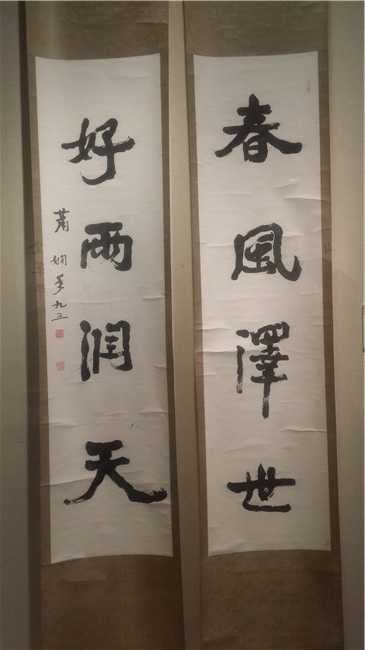 春風澤世
好雨润天
蕭娴年九三